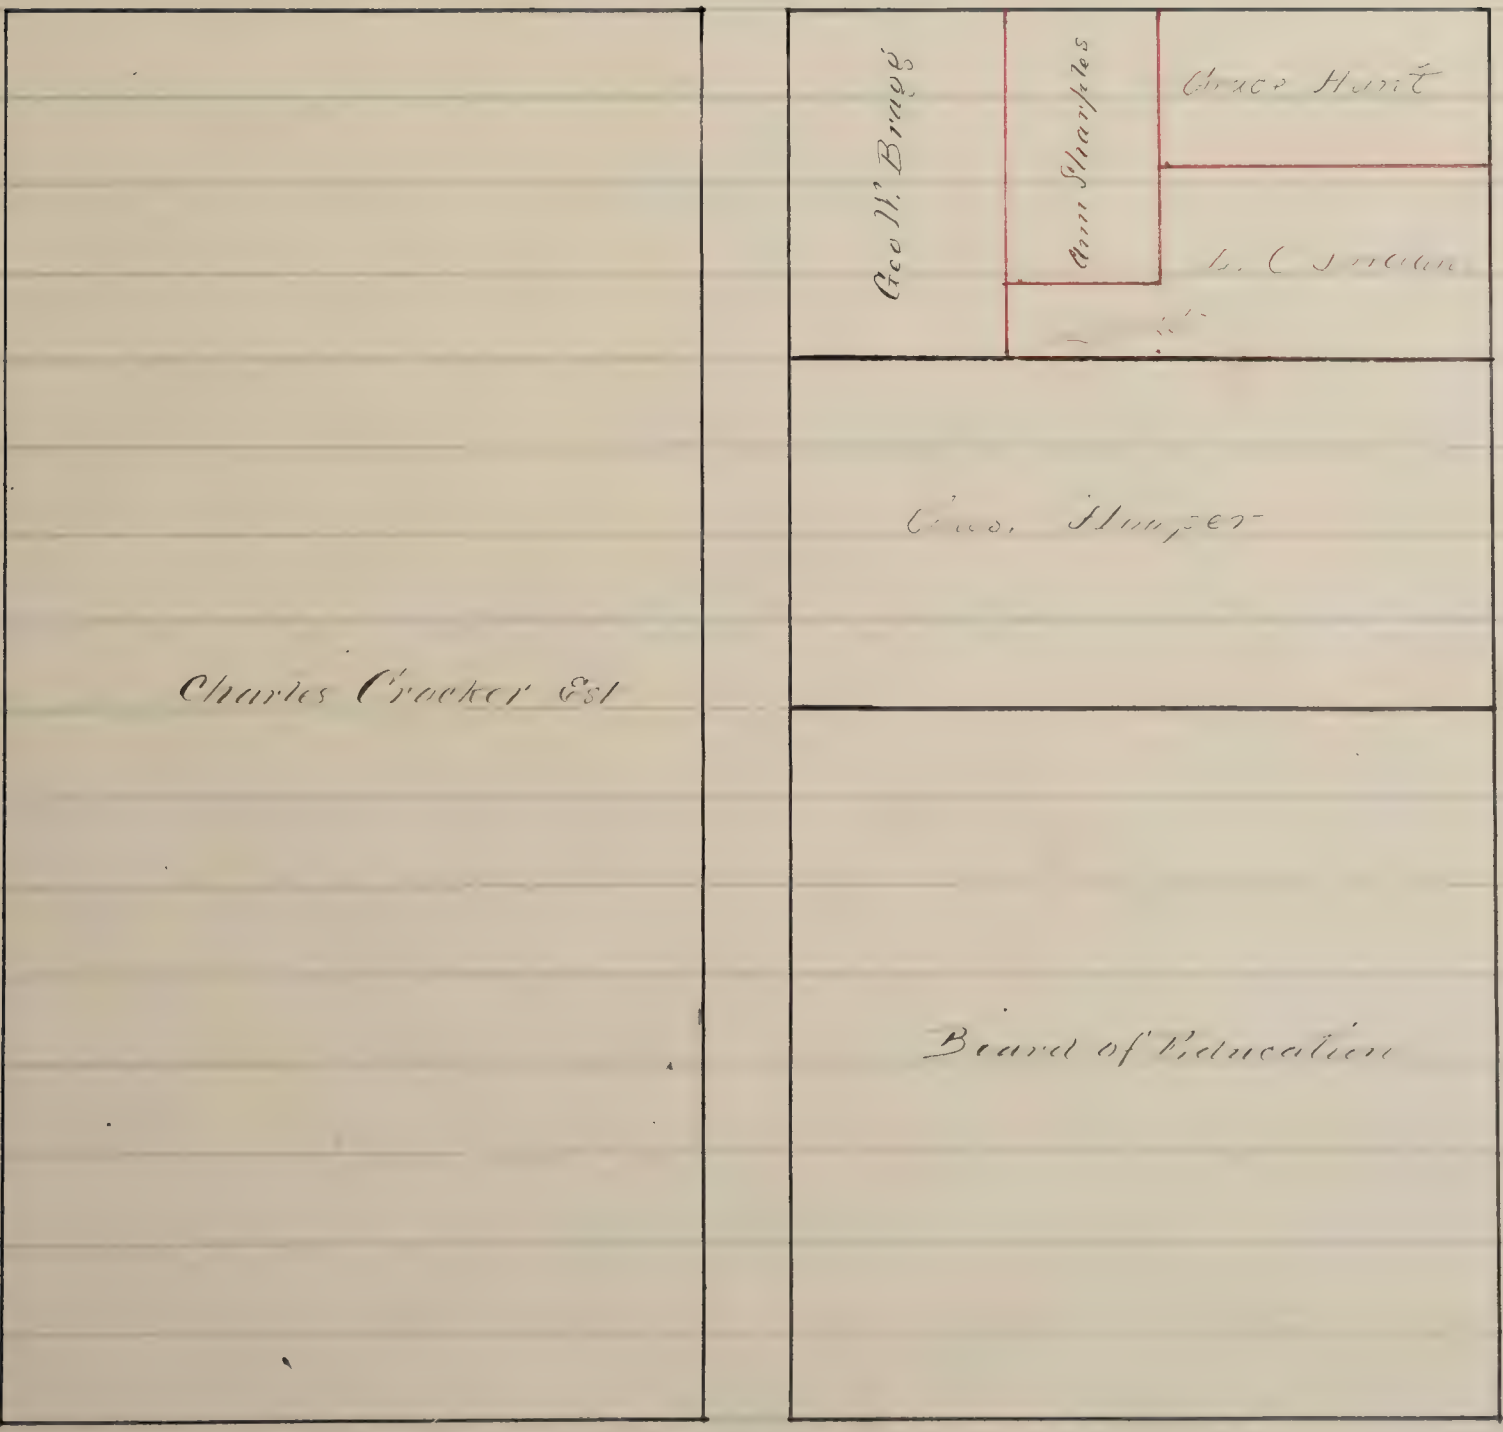 Charles Crocker Est
Geo W. Bragg
Ann Sharples
Grace Hunt
L. C
Board of Education